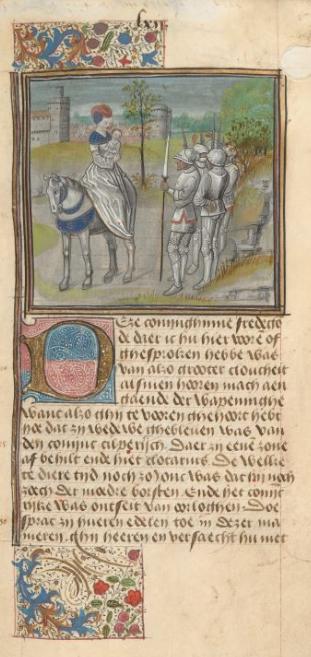 lxii
Eze conijnghinne fredego
de daer ic hu hier vore of
ghesproken hebbe was
van also grooter cloucheit
als men hooren mach aen
gaende der wapeninghe
want also ghij te vooren ghehoort hebt
hoe dat zij wedewe ghebleven was van
den coninc cilperijch. Daer zij eenen zone
af behilt ende hiet clotarius. De welke
te diere tijd noch zo jonc was dat hij noch
zooch der moedre borsten. Ende het conijc
rijke was ontseit van orloghen. Doe
sprac zij hueren edelen toe in dezer ma
nieren. ghij heeren en versaecht hu niet